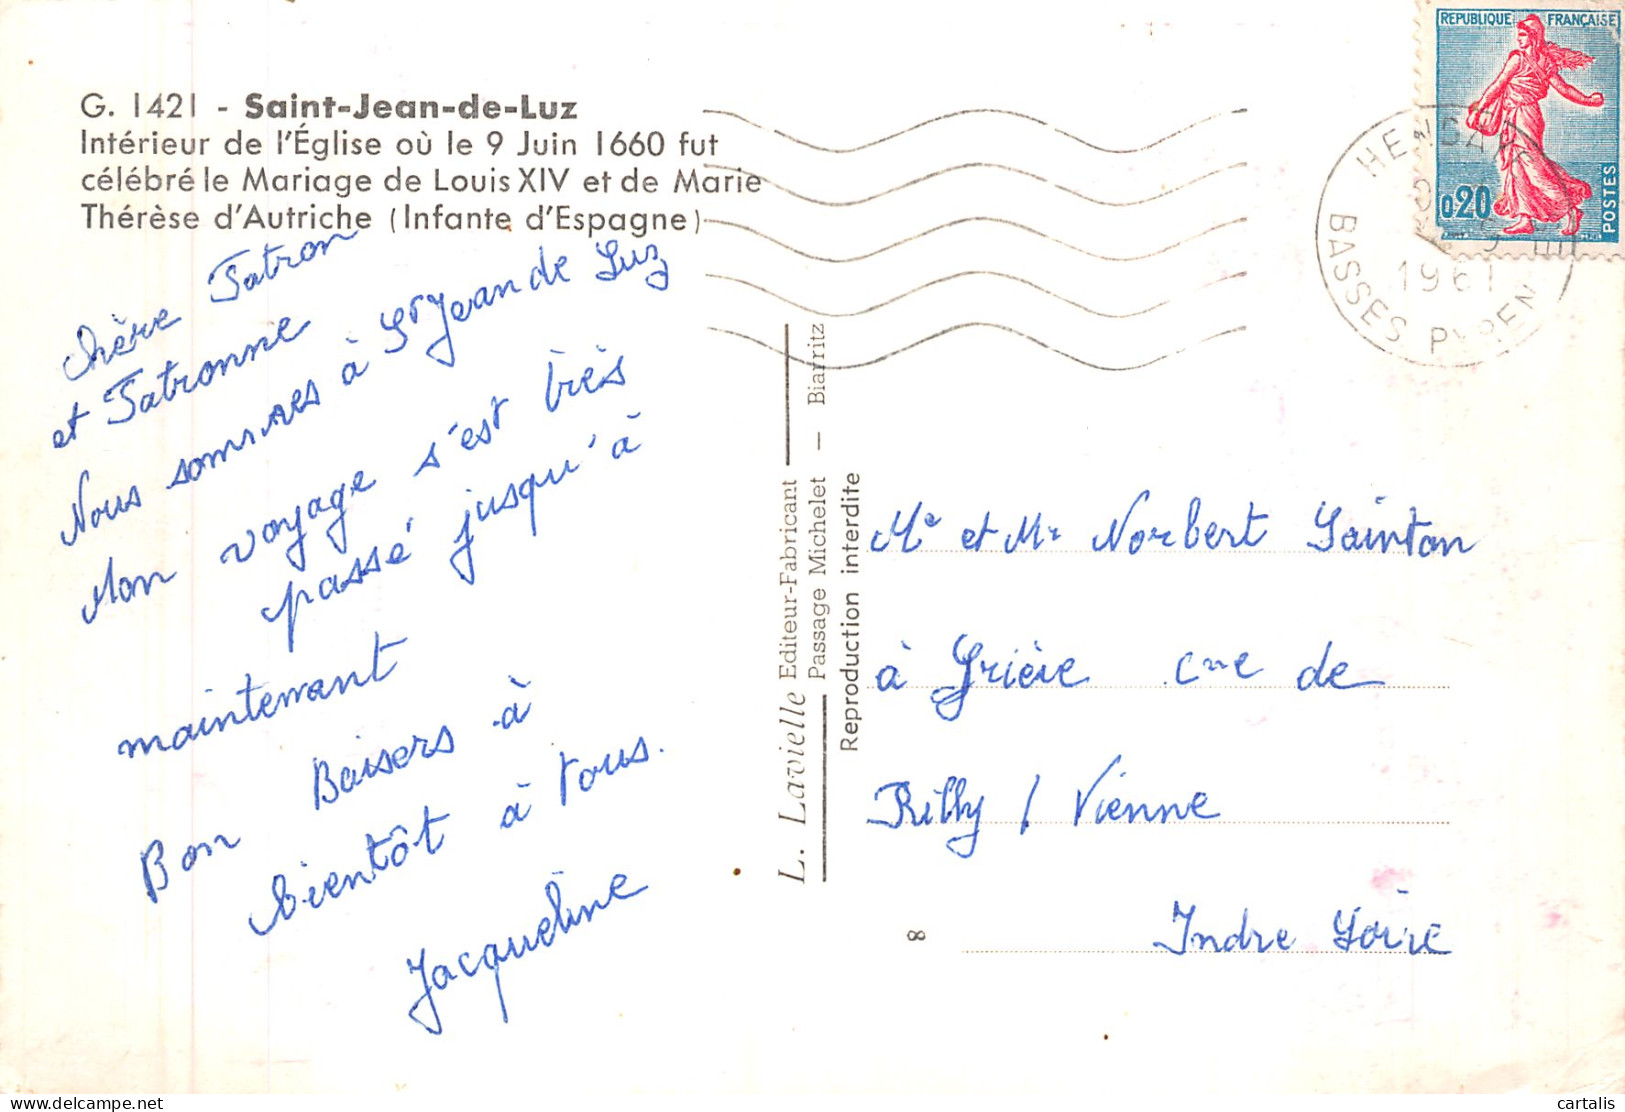 G. 1421 - Saint-Jean-de-Luz
Intérieur de l'Église où le 9 Juin 1660 fut
célébré le Mariage de Louis XIV et de Marie
Thérèse d'Autriche (Infante d'Espagne)
chère Patron
et Patronne
Nous sommes à St Jean de Luz
Mon voyage s'est très
passé jusqu'à
maintenant
Bon Baisers à
bientôt à tous.
Jacqueline
L. Lavielle Editeur-Fabricant
Passage Michelet — Biarritz
Reproduction interdite
REPUBLIQUE FRANÇAISE
0,20
POSTES
HENDAY
1961
BASSES PYREN
Me et Mr Norbert Sainton
à Grièie cne de
Rilly / Vienne
Indre Loire
8
cartalis